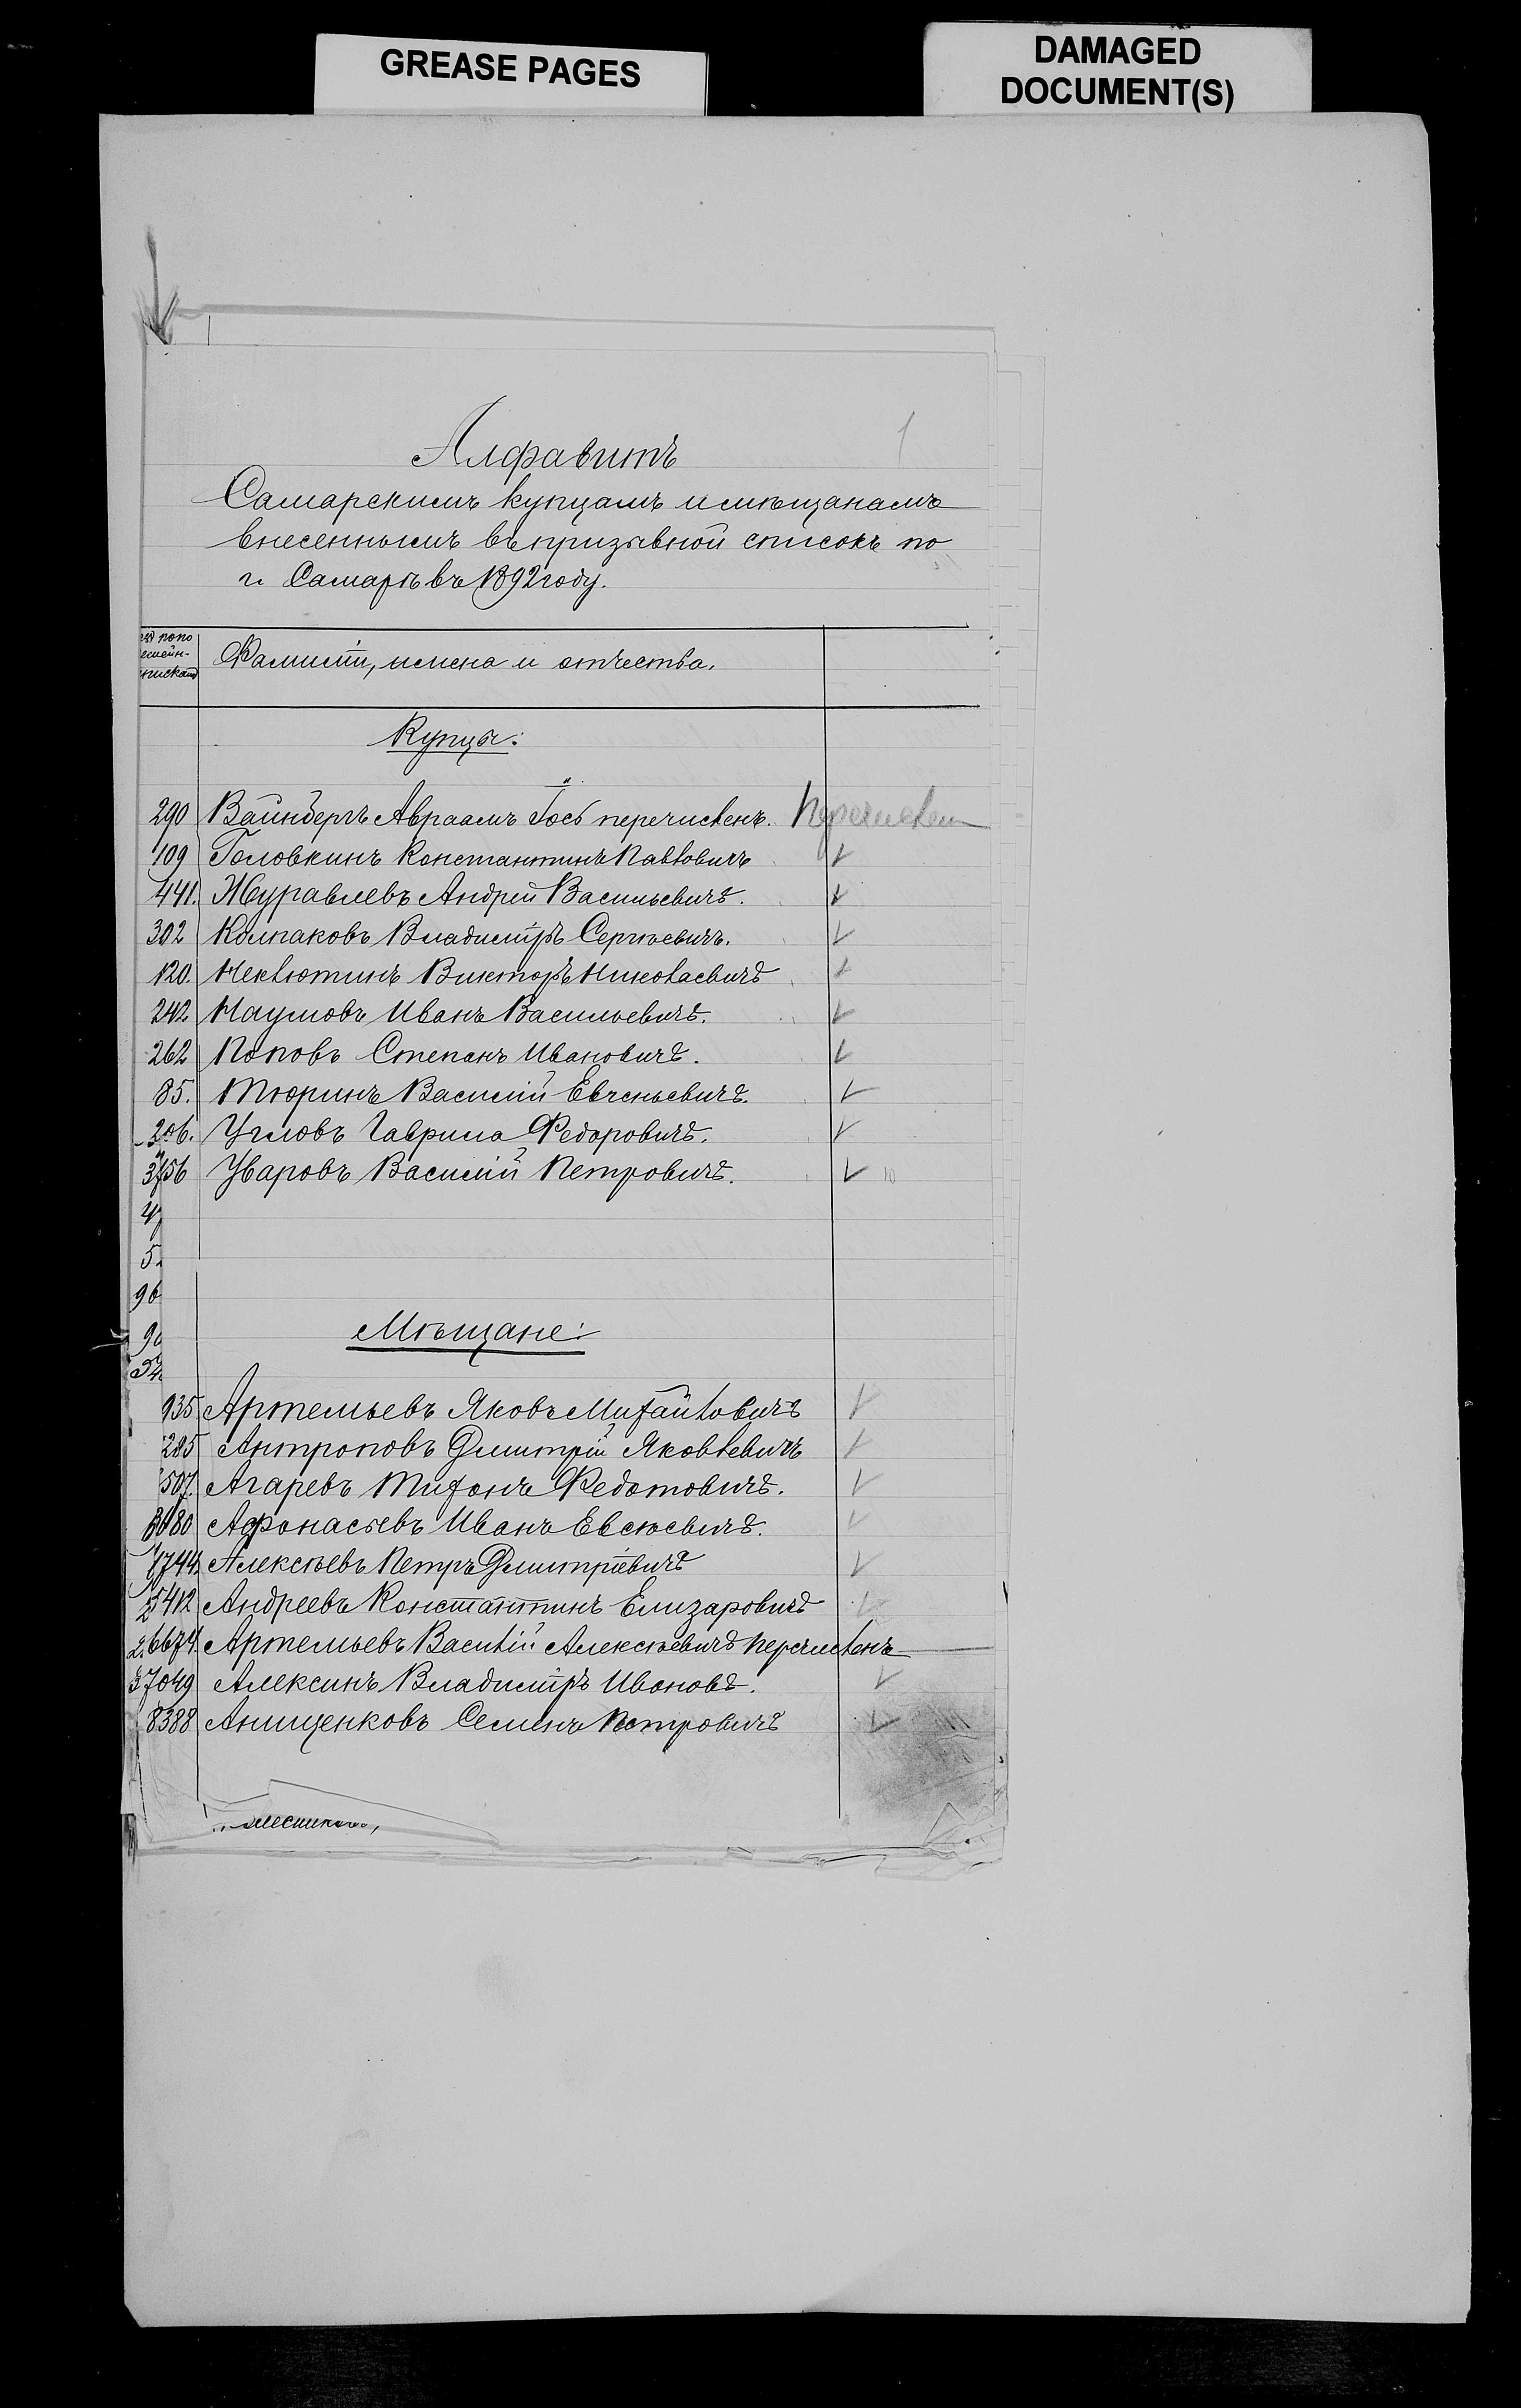 GREASE PAGES
DAMAGED
DOCUMENT(S)
1
Алфавитъ
Самарскимъ купцамъ и мѣщанамъ
внесеннымъ въ призывной списокъ по
г. Самарѣ въ 1892 году.
по по
семейн.
спискамъ
Фамиліи, имена и отчества.
Купцы:
290 Вайнбергъ Авраамъ Іос перечисленъ. Перечислен
109 Головкинъ Константинъ Павловичъ
441. Журавлевъ Андрей Васильевичъ.
302 Колпаковъ Владиміръ Сергѣевичъ.
120. Неклютинъ Викторъ Николаевичъ
242 Наумовъ Иванъ Васильевичъ.
262 Поповъ Степанъ Ивановичъ.
85. Тюринъ Василій Евгеньевичъ.
206. Угловъ Гаврила Федоровичъ.
156 Уваровъ Василій Петровичъ. 10
4
5
96
90
54
Мѣщане:
935 Артемьевъ Яковъ Михайловичъ
285 Антроповъ Дмитрій Яковлевичъ
507. Агаревъ Тифонъ Федотовичъ.
80 Афонасьевъ Иванъ Евсѣевичъ.
1744. Алексѣевъ Петръ Дмитріевичъ
5412 Андреевъ Константинъ Елизаровичъ
6674. Артемьевъ Василій Алексѣевичъ перечисленъ
7049 Алексинъ Владиміръ Ивановъ.
8388 Анищенковъ Семенъ Петровичъ